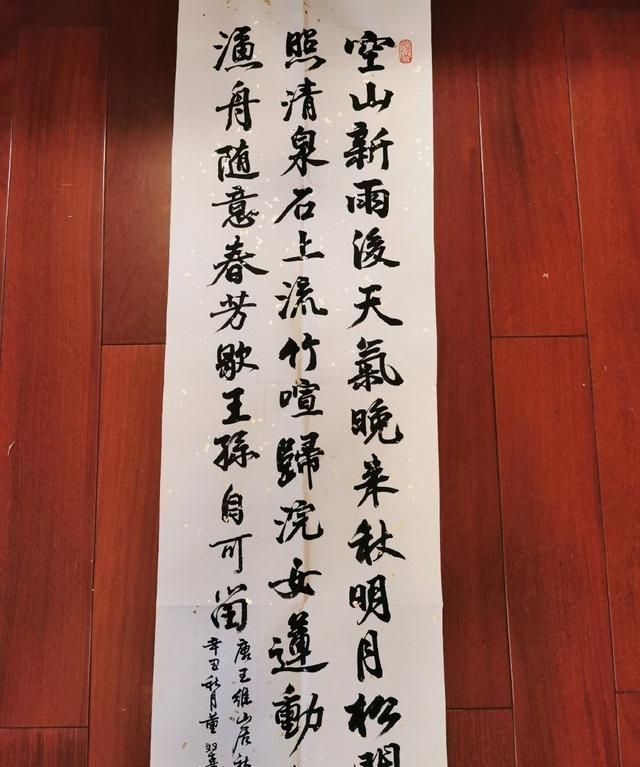 空山新雨後天氣晚来秋明月松間
照清泉石上流竹喧歸浣女蓮動
漁舟随意春芳歇王孫自可留
唐王維山居秋
辛丑秋月董